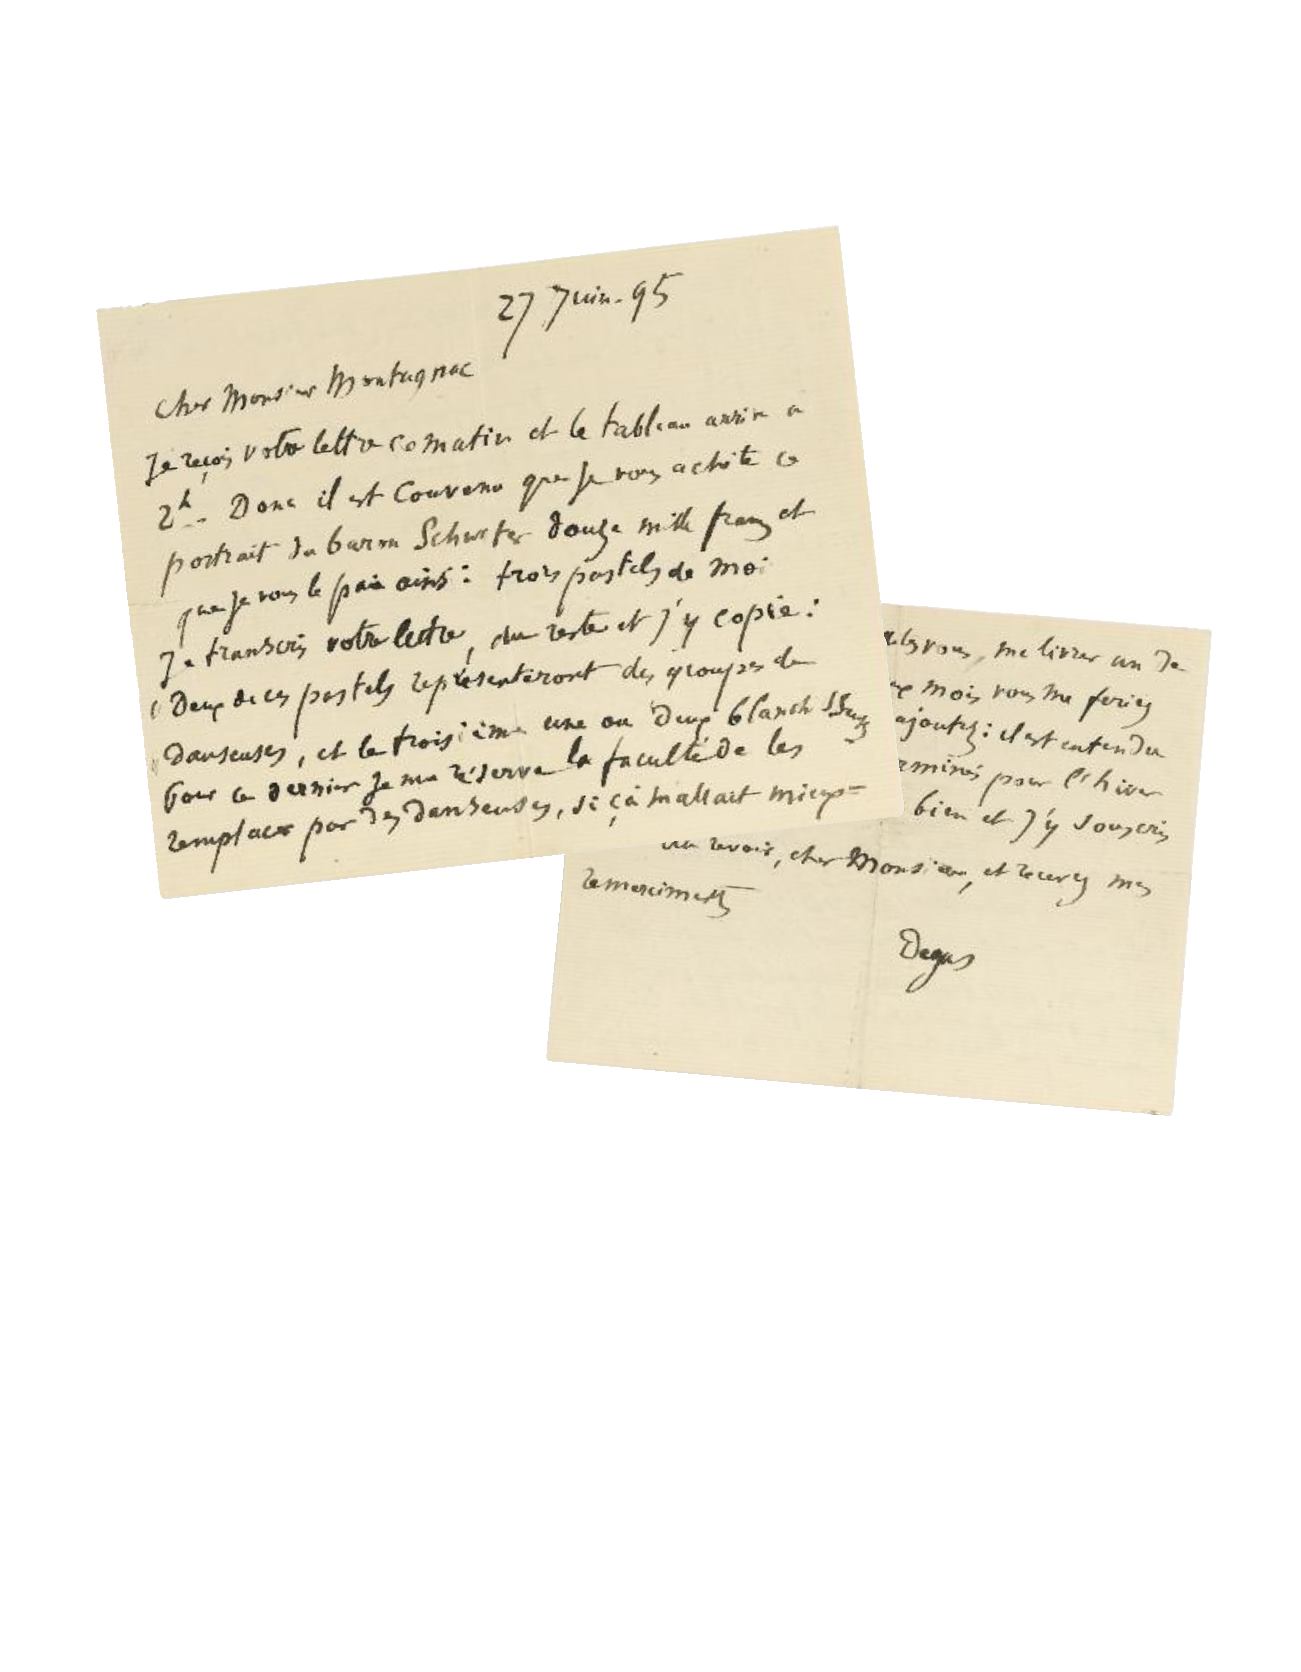 27 Juin. 95
Cher Monsieur Montagnac
Je reçois votre lettre ce matin et le tableau arrive a
2h.. Donc il est convenu que je vous achète ce
portrait du baron Schwiter douze mille francs et
que je vous le paie ainsi : trois pastels de moi
Je transcris votre lettre, du reste et j'y copie :
( Deux de ces pastels représenteront des groupes de
danseuses, et le troisième une ou deux blanchisseuses
Pour ce dernier je me réserve la faculté de les
remplacer par des danseuses, si çà m'allait mieux =
vous, me livrer un de
mois vous me feriez
ajoutez : il est entendu
pour l'hiver
bien et j'y souscris
au revoir, cher Monsieur, et recevez mes
remerciments
Degas